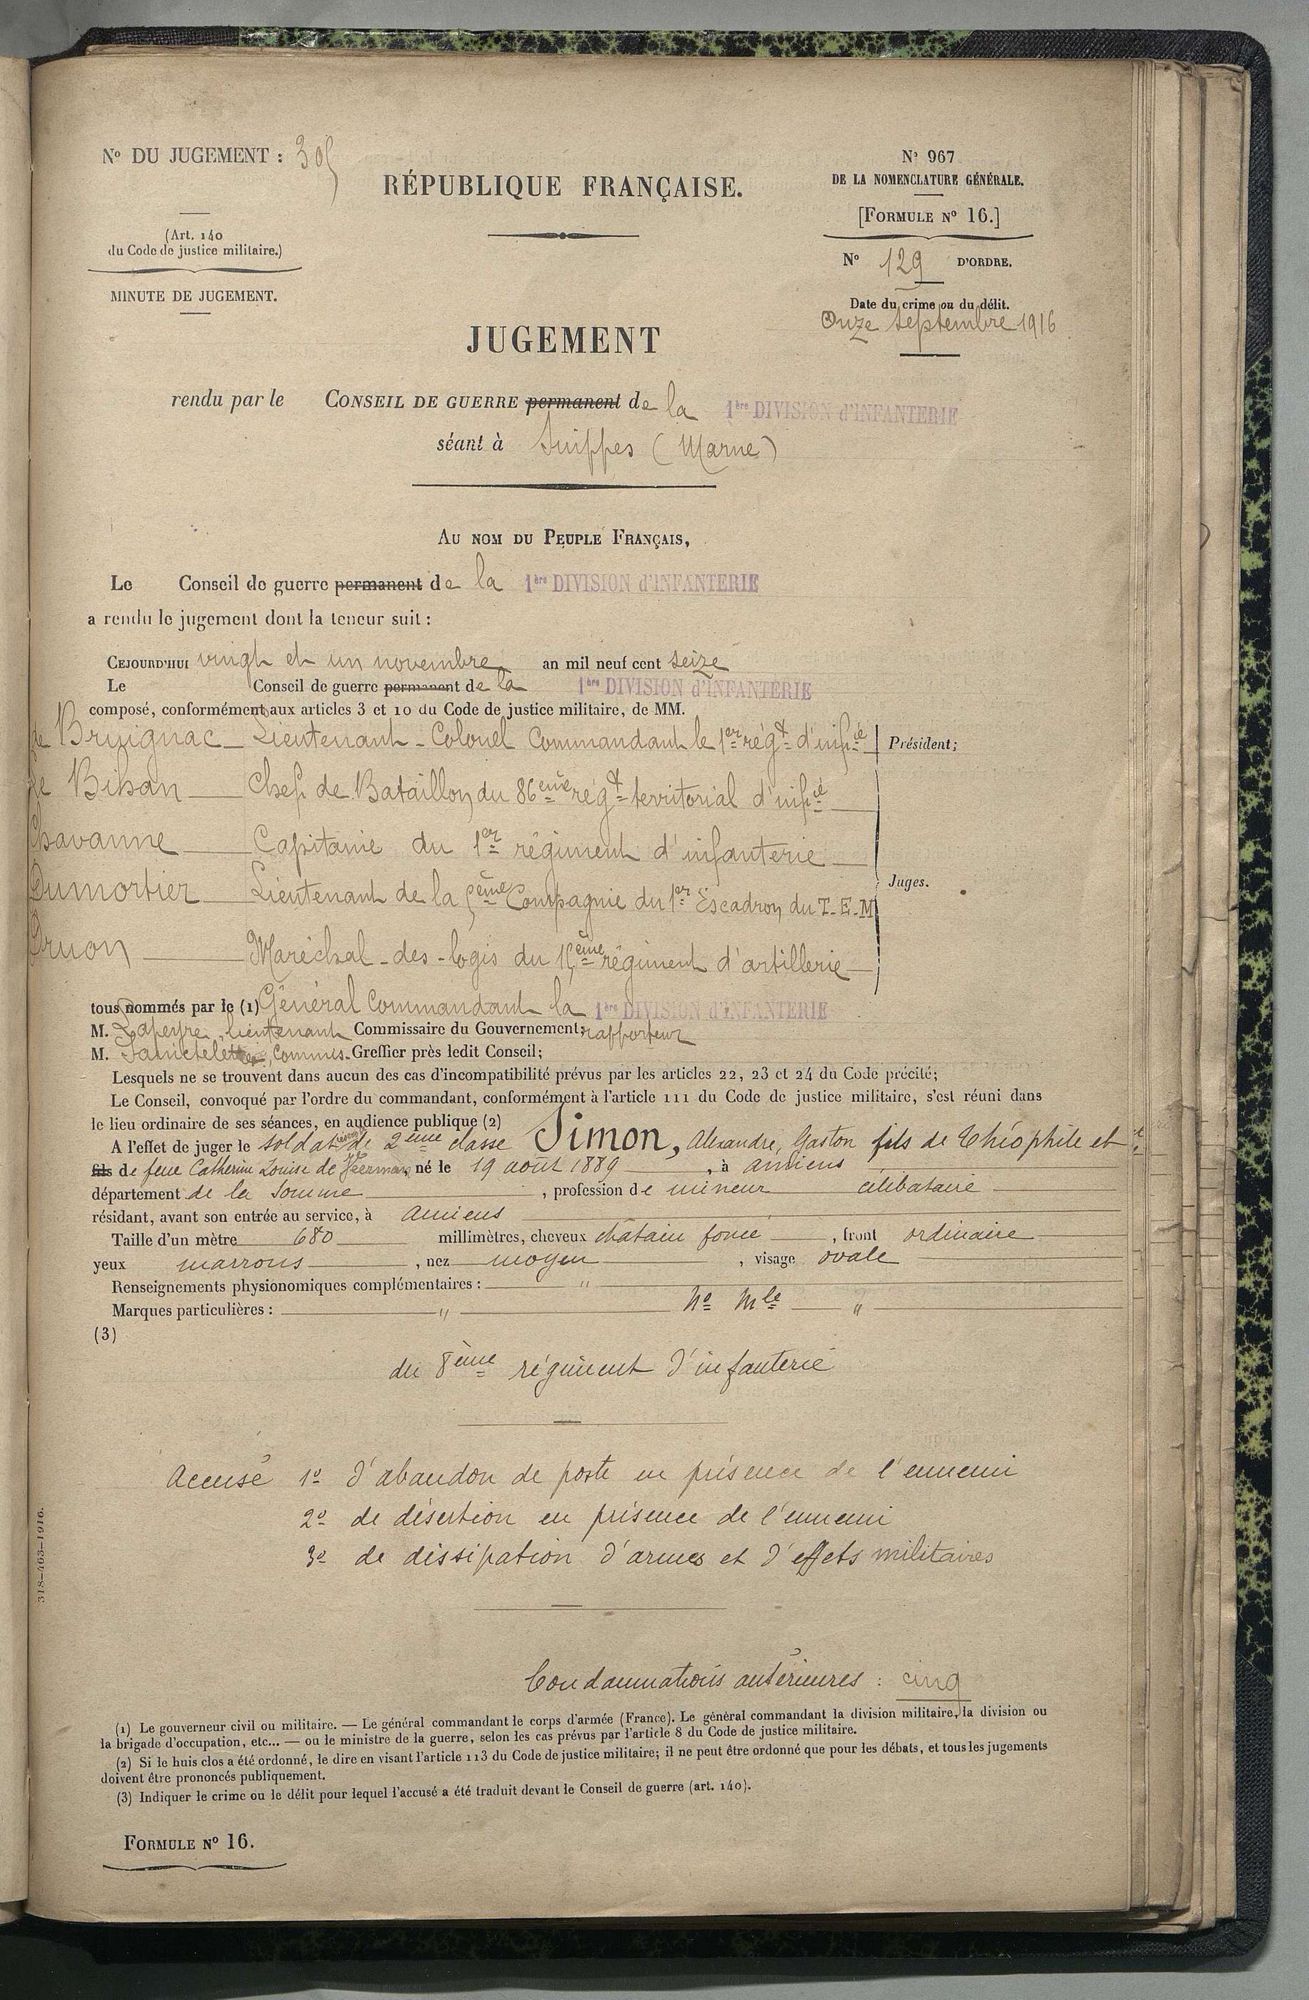 N° DU JUGEMENT : 305
RÉPUBLIQUE FRANÇAISE.
N° 967
DE LA NOMENCLATURE GÉNÉRALE.
[FORMULE N° 16.]
(Art. 140
du Code de justice militaire.)
N° 129 D'ORDRE.
MINUTE DE JUGEMENT.
Date du crime ou du délit.
Onze septembre 1916
JUGEMENT
rendu par le CONSEIL DE GUERRE permanent de la 1ère DIVISION d'INFANTERIE
séant à Suippes (Marne)
AU NOM DU PEUPLE FRANÇAIS,
Le Conseil de guerre permanent de la 1ère DIVISION d'INFANTERIE
a rendu le jugement dont la teneur suit :
CEJOURD'HUI vingt et un novembre an mil neuf cent seize
Le Conseil de guerre permanent de la 1ère DIVISION d'INFANTERIE
composé, conformément aux articles 3 et 10 du Code de justice militaire, de MM.
de Bruignac Lieutenant-Colonel Commandant le 1er régt d'infie Président;
Le Bihan Chef de Bataillon du 86ème régt territorial d'infie
Chavanne Capitaine du 1er régiment d'infanterie
Dumortier Lieutenant de la 5ème Compagnie du 1er Escadron du T.E.M Juges.
Druon Maréchal-des-logis du 15ème régiment d'artillerie
tous nommés par le (1) Général Commandant la 1ère DIVISION d'INFANTERIE
M. Lapeyre, lieutenant Commissaire du Gouvernement; rapporteur
M. Commis-Greffier près ledit Conseil;
Lesquels ne se trouvent dans aucun des cas d'incompatibilité prévus par les articles 22, 23 et 24 du Code précité;
Le Conseil, convoqué par l'ordre du commandant, conformément à l'article 111 du Code de justice militaire, s'est réuni dans
le lieu ordinaire de ses séances, en audience publique (2)
A l'effet de juger le soldat de 2ème classe Simon, Alexandre, Gaston fils de Théophile et
fils de feue Catherine Louise de né le 19 août 1889, à Amiens
département de la Somme, profession de mineur célibataire
résidant, avant son entrée au service, à Amiens
Taille d'un mètre 680 millimètres, cheveux châtain foncé, front ordinaire
yeux marrons, nez moyen, visage ovale
Renseignements physionomiques complémentaires : "
Marques particulières : " No Mle "
(3)
du 8ème régiment d'infanterie
Accusé 1° d'abandon de poste en présence de l'ennemi
2° de désertion en présence de l'ennemi
3° de dissipation d'armes et d'effets militaires
Condamnations antérieures : cinq
(1) Le gouverneur civil ou militaire. — Le général commandant le corps d'armée (France). Le général commandant la division militaire, la division ou
la brigade d'occupation, etc... — ou le ministre de la guerre, selon les cas prévus par l'article 8 du Code de justice militaire.
(2) Si le huis clos a été ordonné, le dire en visant l'article 113 du Code de justice militaire; il ne peut être ordonné que pour les débats, et tous les jugements
doivent être prononcés publiquement.
(3) Indiquer le crime ou le délit pour lequel l'accusé a été traduit devant le Conseil de guerre (art. 140).
FORMULE N° 16.
318-463-1916.